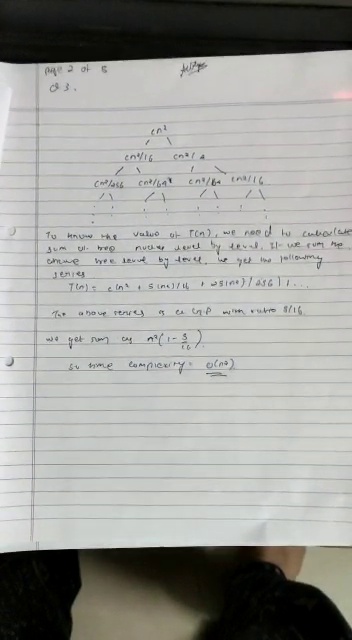 Page 2 of 15
Q 3.
cn²
cn²/16 cn²/4
cn²/256 cn²/64 cn²/64 cn²/16
To know the value of T(n), we need to calculate
sum of tree nodes level by level. If we sum the
above tree level by level, we get the following
series
T(n) = c(n² + 5(n²)/16 + 25(n²)/256) + ...
The above series is a G.P with ratio 5/16.
We get sum as n²(1 - 5/16)
So time complexity = O(n²)